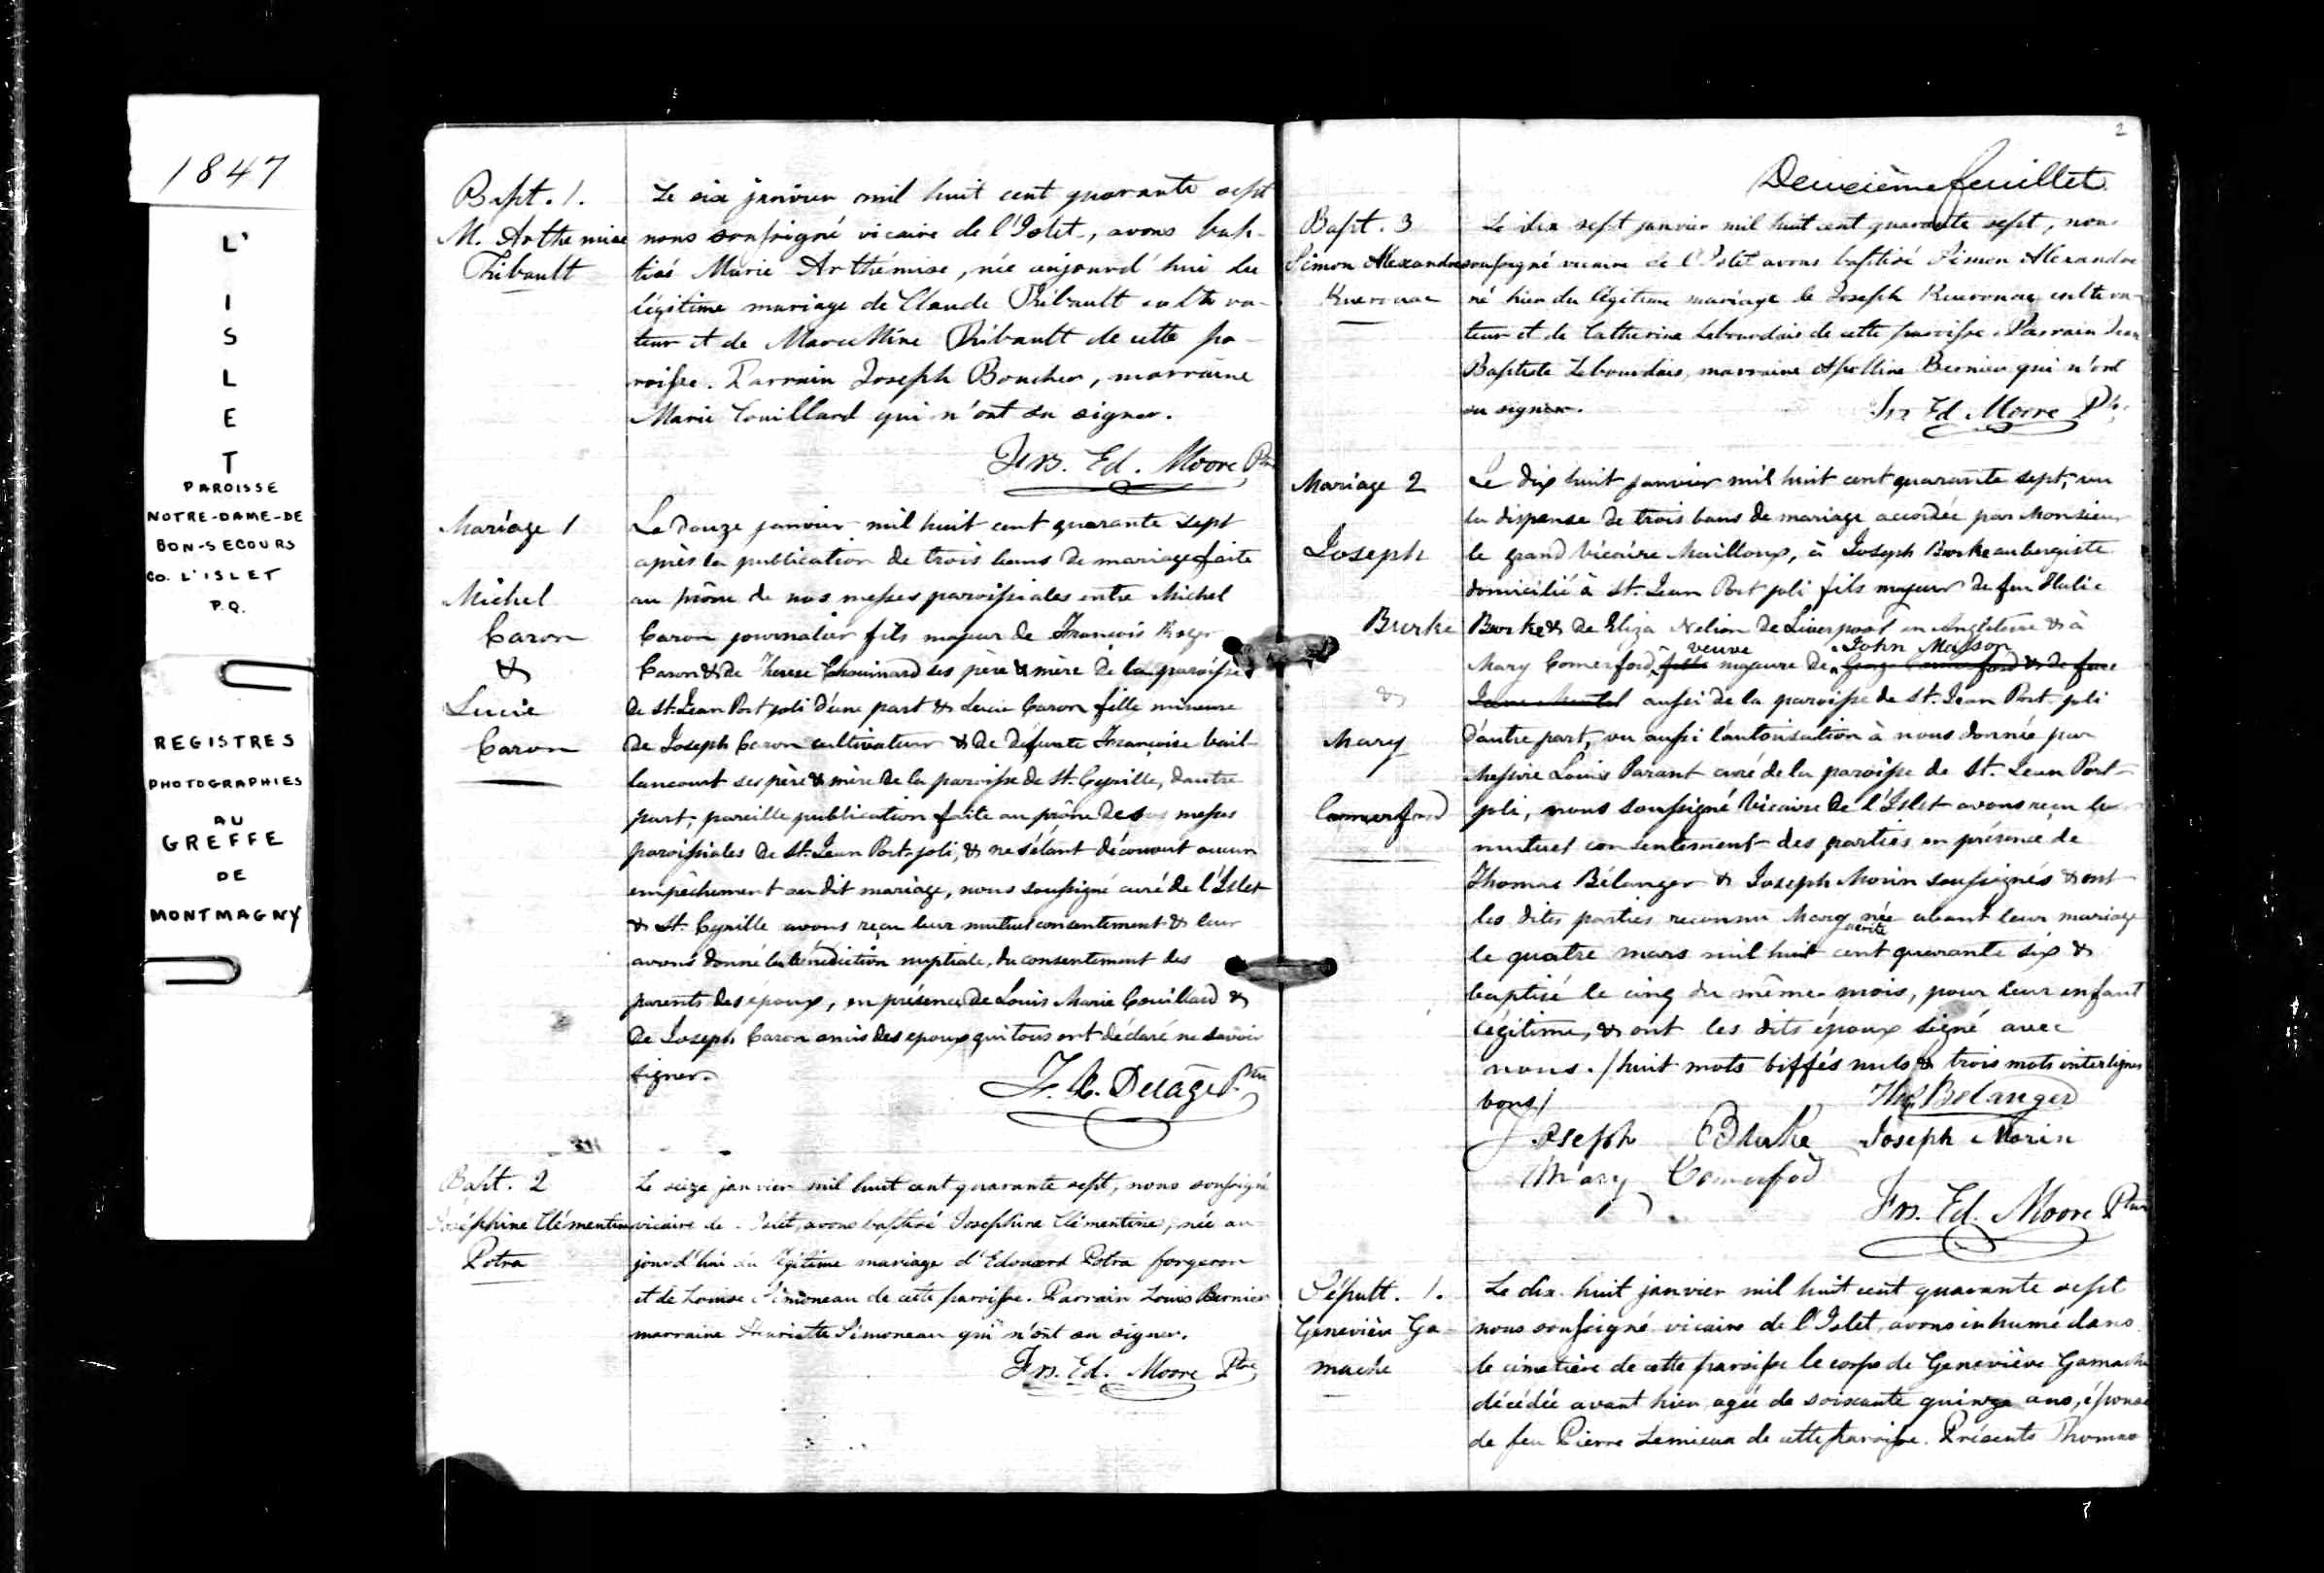 1847
L'
I
S
L
E
T
PAROISSE
NOTRE-DAME-DE
BON-SECOURS
CO. L'ISLET
P.Q.
REGISTRES
PHOTOGRAPHIES
AU
GREFFE
DE
MONTMAGNY
Bapt. 1.
M. Arthemise
Thibault
Le six janvier mil huit cent quarante sept
nous soussigné vicaire de l'Islet, avons bap-
tisé Marie Arthémise, née aujourd'hui du
légitime mariage de Claude Thibault cultiva-
teur et de Marcelline Thibault de cette pa-
roisse. Parrain Joseph Boucher, marraine
Marie Couillard qui n'ont su signer.
Frs. Ed. Moore Ptre
Mariage 1
Michel
Caron
&
Lucie
Caron
Le douze janvier mil huit cent quarante sept
après la publication de trois bans de mariage faite
au prône de nos messes paroissiales entre Michel
Caron journalier fils majeur de François Roger
Caron & de Therese Chouinard ses père & mère de la paroisse
de St. Jean Port joli d'une part & Lucie Caron fille mineure
de Joseph Caron cultivateur & de défunte Françoise Vail-
lancourt ses père & mère de la paroisse de St. Cyrille, d'autre
part, pareille publication faite au prône des messes
paroissiales de St. Jean Port-joli, & ne s'étant découvert aucun
empêchement au dit mariage, nous soussigné curé de l'Islet
& St. Cyrille avons reçu leur mutuel consentement & leur
avons donné la bénédiction nuptiale, du consentement des
parents des époux, en présence de Louis Marie Couillard &
de Joseph Caron amis des epoux qui tous ont déclaré ne savoir
signer.
F. X. Delâge Ptre
Bapt. 2
Joséphine Clémentine
Potra
Le seize janvier mil huit cent quarante sept, nous soussigné
vicaire de l'Islet, avons baptisé Josephine Clémentine, née au-
jourd'hui du légitime mariage d'Edouard Potra forgeron
et de Louise Simoneau de cette paroisse. Parrain Louis Bernier
marraine Henriette Simoneau qui n'ont su signer.
Frs. Ed. Moore Ptre
2
Deuxième feuillet
Bapt. 3
Simon Alexandre
Kuerouac
Le dix sept janvier mil huit cent quarante sept, nous
soussigné vicaire de l'Islet avons baptisé Simon Alexandre
né hier du légitime mariage de Joseph Kuerouac cultiva-
teur et de Catherine Lebourdais de cette paroisse. Parrain Jean
Baptiste Lebourdais, marraine Apolline Bernier qui n'ont
su signer.
Frs Ed Moore Ptr.
Mariage 2
Joseph
Burke
&
Mary
Commerford
Le dix huit janvier mil huit cent quarante sept, vu
la dispense de trois bans de mariage accordée par Monsieur
le grand Vicaire Mailloux, à Joseph Burke aubergiste
domicilié à St. Jean Port joli fils majeur de feu
Burke & de Eliza Nelson de Liverpool en Angleterre & à
veuve John Masson
Mary Comerford, fille majeure de George Comerford & de feue
Jane aussi de la paroisse de St. Jean Port-joli
d'autre part, vu aussi l'autorisation à nous donnée par
Messire Louis Parant curé de la paroisse de St. Jean Port-
joli, nous soussigné Vicaire de l'Islet avons reçu le
mutuel consentement des parties en présence de
Thomas Bélanger & Joseph Morin soussignés & ont
les dites parties reconnu Marg née avant leur mariage
uerite
le quatre mars mil huit cent quarante six &
baptisé le cinq du même mois, pour leur enfant
légitime, & ont les dits époux signé avec
nous. /huit mots biffés nuls & trois mots interlignes
bons/
Ths. Belanger
Joseph Burke Joseph Morin
Mary Comerfod
Frs. Ed. Moore Ptre
Sépult. 1.
Geneviève Ga-
mache
Le dix huit janvier mil huit cent quarante sept
nous soussigné vicaire de l'Islet, avons inhumé dans
le cimetière de cette paroisse le corps de Geneviève Gamache
décédée avant hier, agée de soixante quinze ans, épouse
de feu Pierre Lemieux de cette paroisse. Présents Thomas